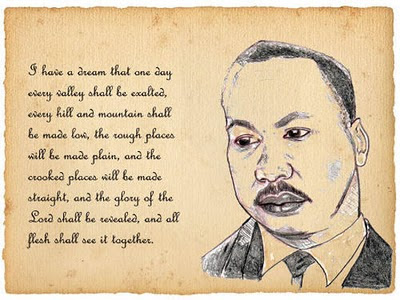 I have a dream that one day
every valley shall be exalted,
every hill and mountain shall
be made low, the rough places
will be made plain, and the
crooked places will be made
straight, and the glory of the
Lord shall be revealed, and all
flesh shall see it together.